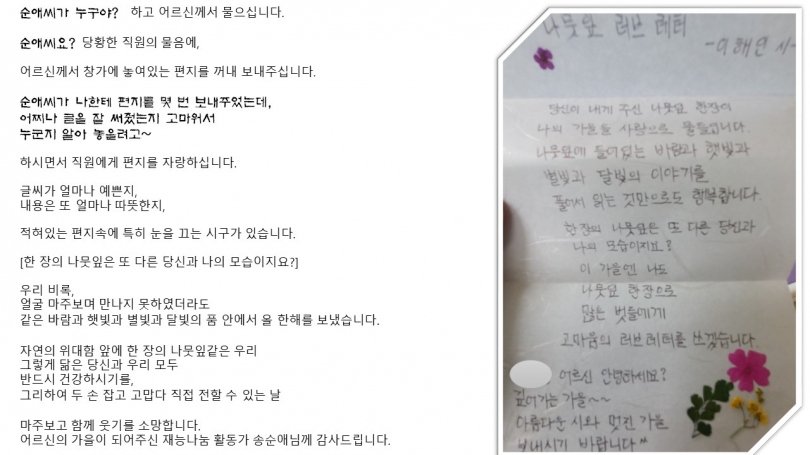 순애씨가 누구야? 하고 어르신께서 물으십니다.
순애씨요? 당황한 직원의 물음에,
어르신께서 창가에 놓여있는 편지를 꺼내 보내주십니다.
순애씨가 나한테 편지를 몇 번 보내주었는데,
어찌나 글을 잘 써줬는지 고마워서
누군지 알아 놓을려고~
하시면서 직원에게 편지를 자랑하십니다.
글씨가 얼마나 예쁜지,
내용은 또 얼마나 따뜻한지,
적혀있는 편지속에 특히 눈을 끄는 시구가 있습니다.
[한 장의 나뭇잎은 또 다른 당신과 나의 모습이지요?]
우리 비록,
얼굴 마주보며 만나지 못하였더라도
같은 바람과 햇빛과 별빛과 달빛의 품 안에서 올 한해를 보냈습니다.
자연의 위대함 앞에 한 장의 나뭇잎같은 우리
그렇게 닮은 당신과 우리 모두
반드시 건강하시기를,
그리하여 두 손 잡고 고맙다 직접 전할 수 있는 날
마주보고 함께 웃기를 소망합니다.
어르신의 가을이 되어주신 재능나눔 활동가 송순애님께 감사드립니다.
나뭇잎 러브 레터
-이해인 시-
당신이 내게 주신 나뭇잎 한장이
나의 가을을 사랑으로 물들입니다.
나뭇잎에 들어있는 바람과 햇빛과
별빛과 달빛의 이야기를
풀어서 읽는 것만으로도 행복합니다.
한장의 나뭇잎은 또 다른 당신과
나의 모습이지요?
이 가을엔 나도
나뭇잎 한장으로
많은 벗들에게
고마움의 러브레터를 쓰겠습니다.
어르신 안녕하세요?
깊어가는 가을~~
아름다운 시와 멋진 가을
보내시기 바랍니다^^